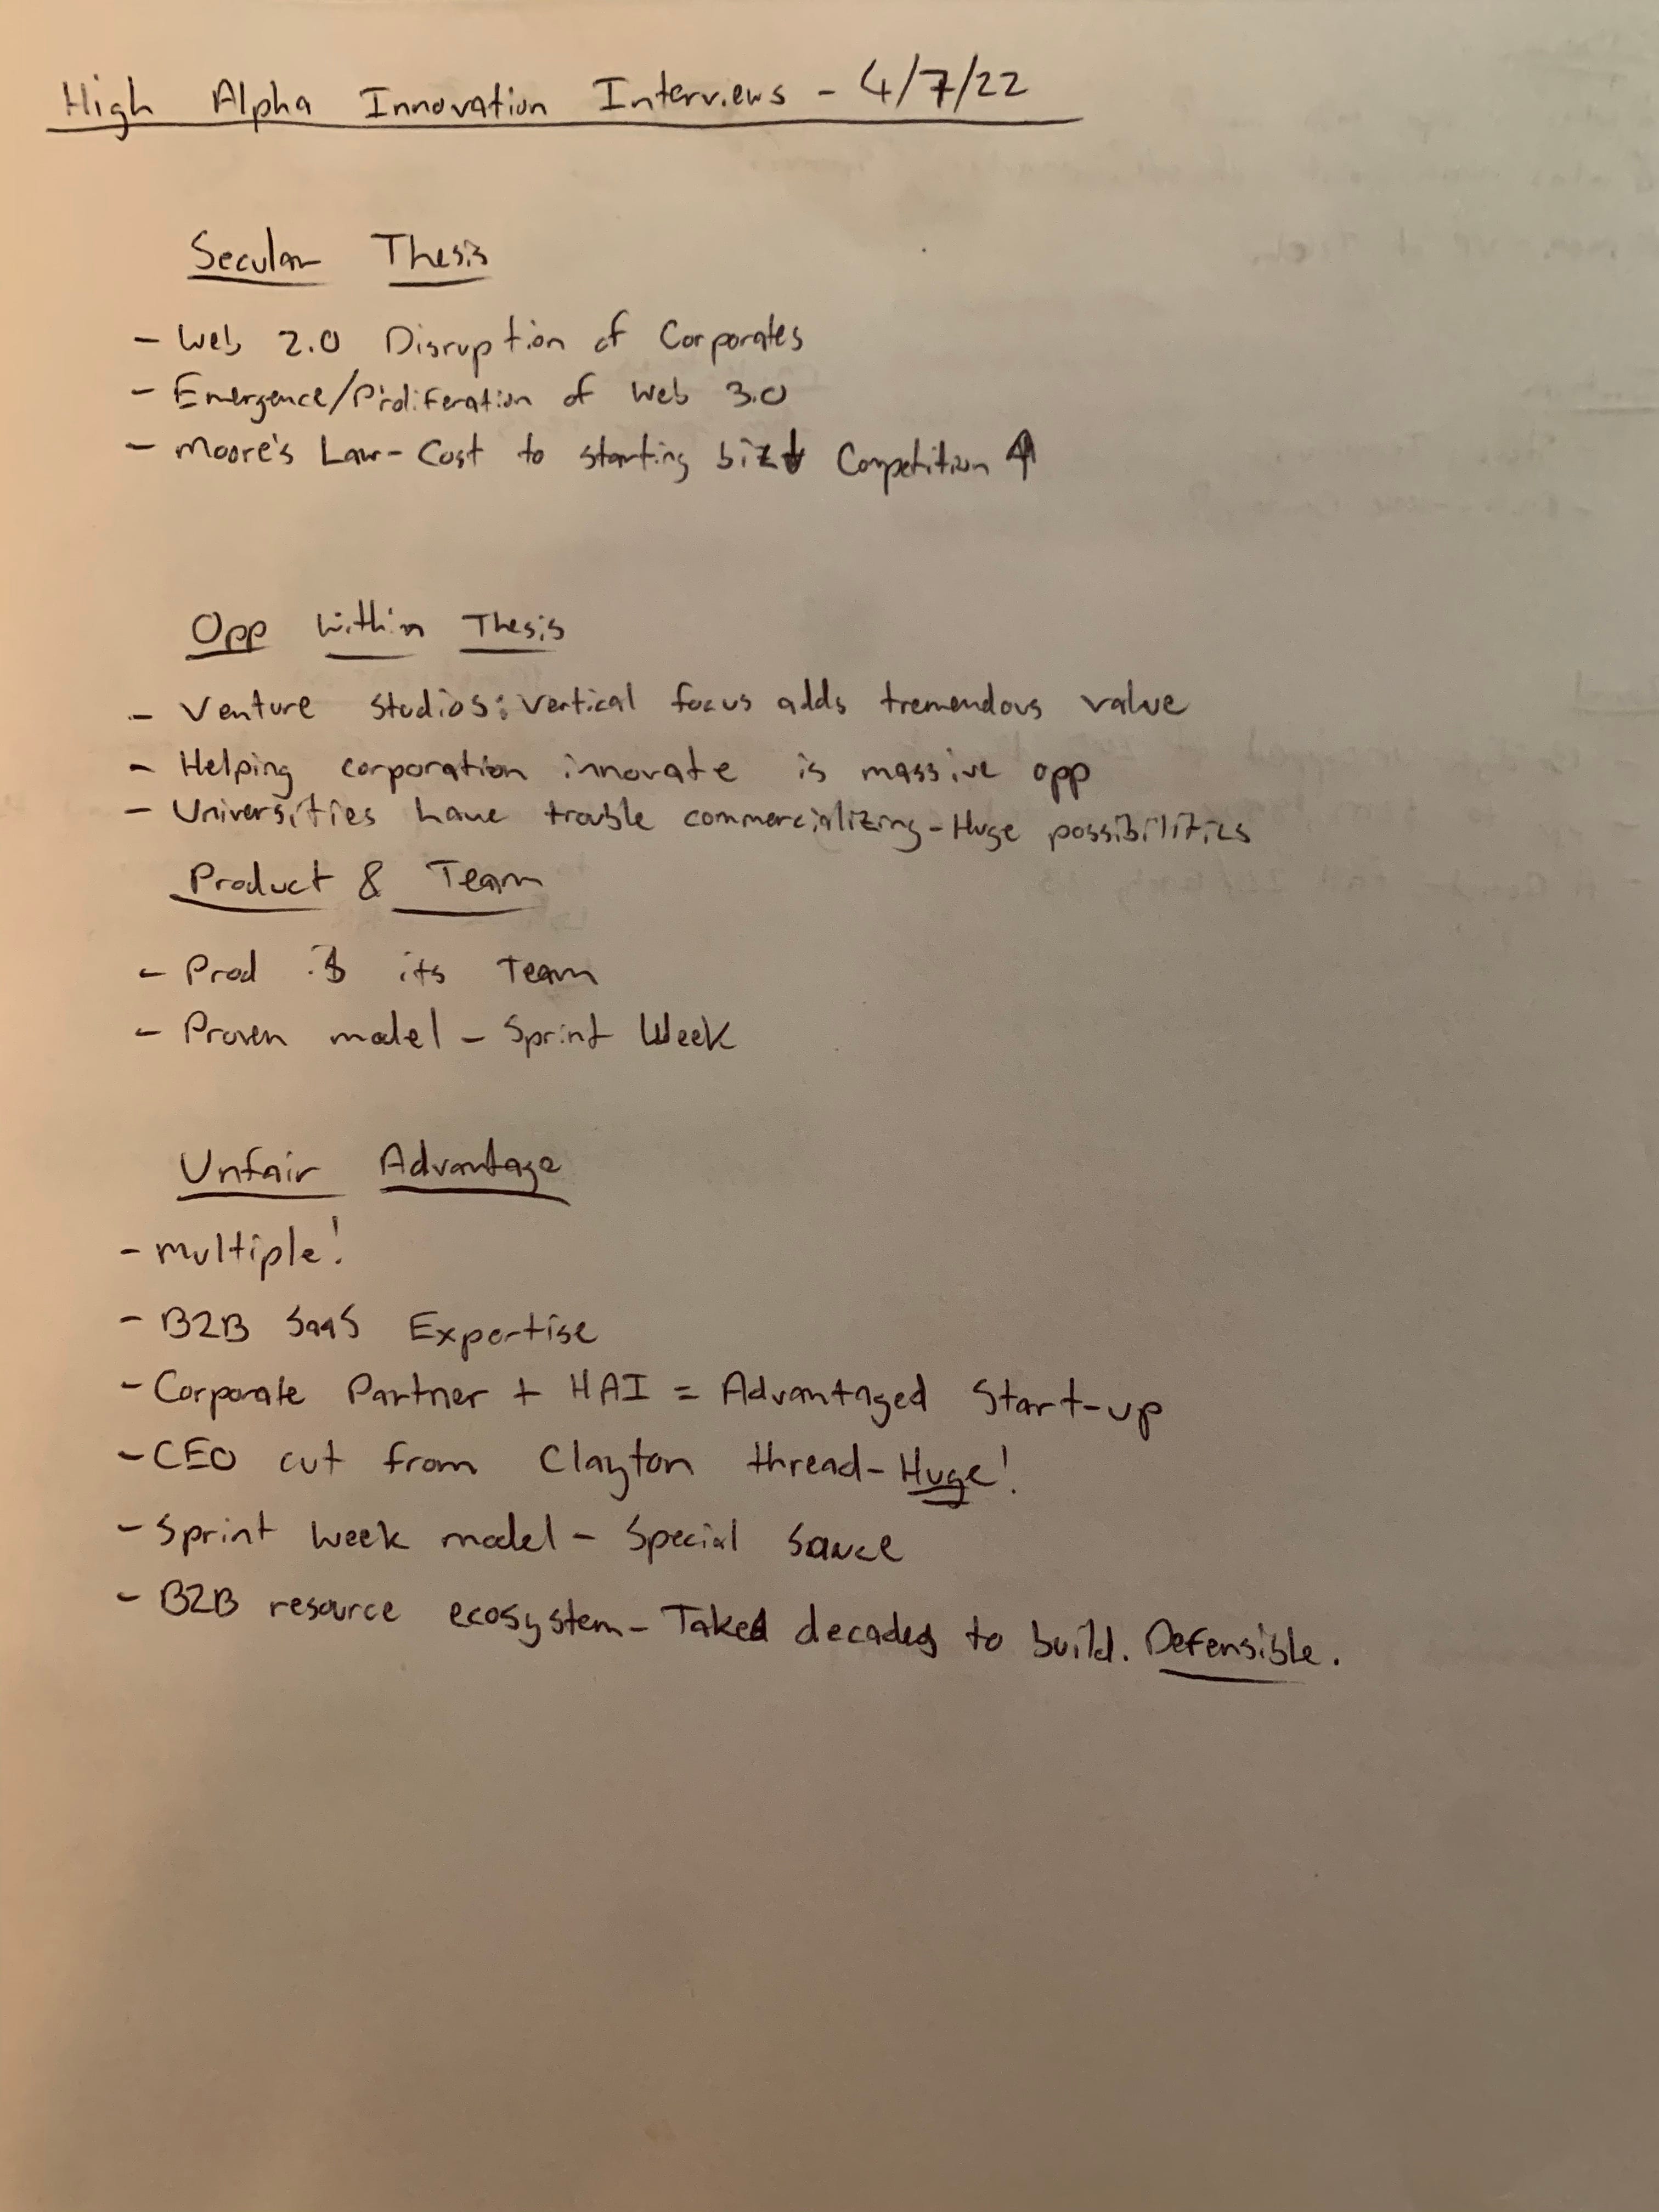 High Alpha Innovation Interviews - 4/7/22
Secular Thesis
- Web 2.0 Disruption of Corporates
- Emergence/Proliferation of Web 3.0
- Moore's Law - Cost to starting biz ↓ Competition ↑
Opp Within Thesis
- Venture studios: vertical focus adds tremendous value
- Helping corporation innovate is massive opp
- Universities have trouble commercializing - Huge possibilities
Product & Team
- Prod is its Team
- Proven model - Sprint Week
Unfair Advantage
- Multiple!
- B2B SaaS Expertise
- Corporate Partner + HAI = Advantaged Start-up
- CEO cut from Clayton thread - Huge!
- Sprint Week model - Special Sauce
- B2B resource ecosystem - Takes decades to build. Defensible.